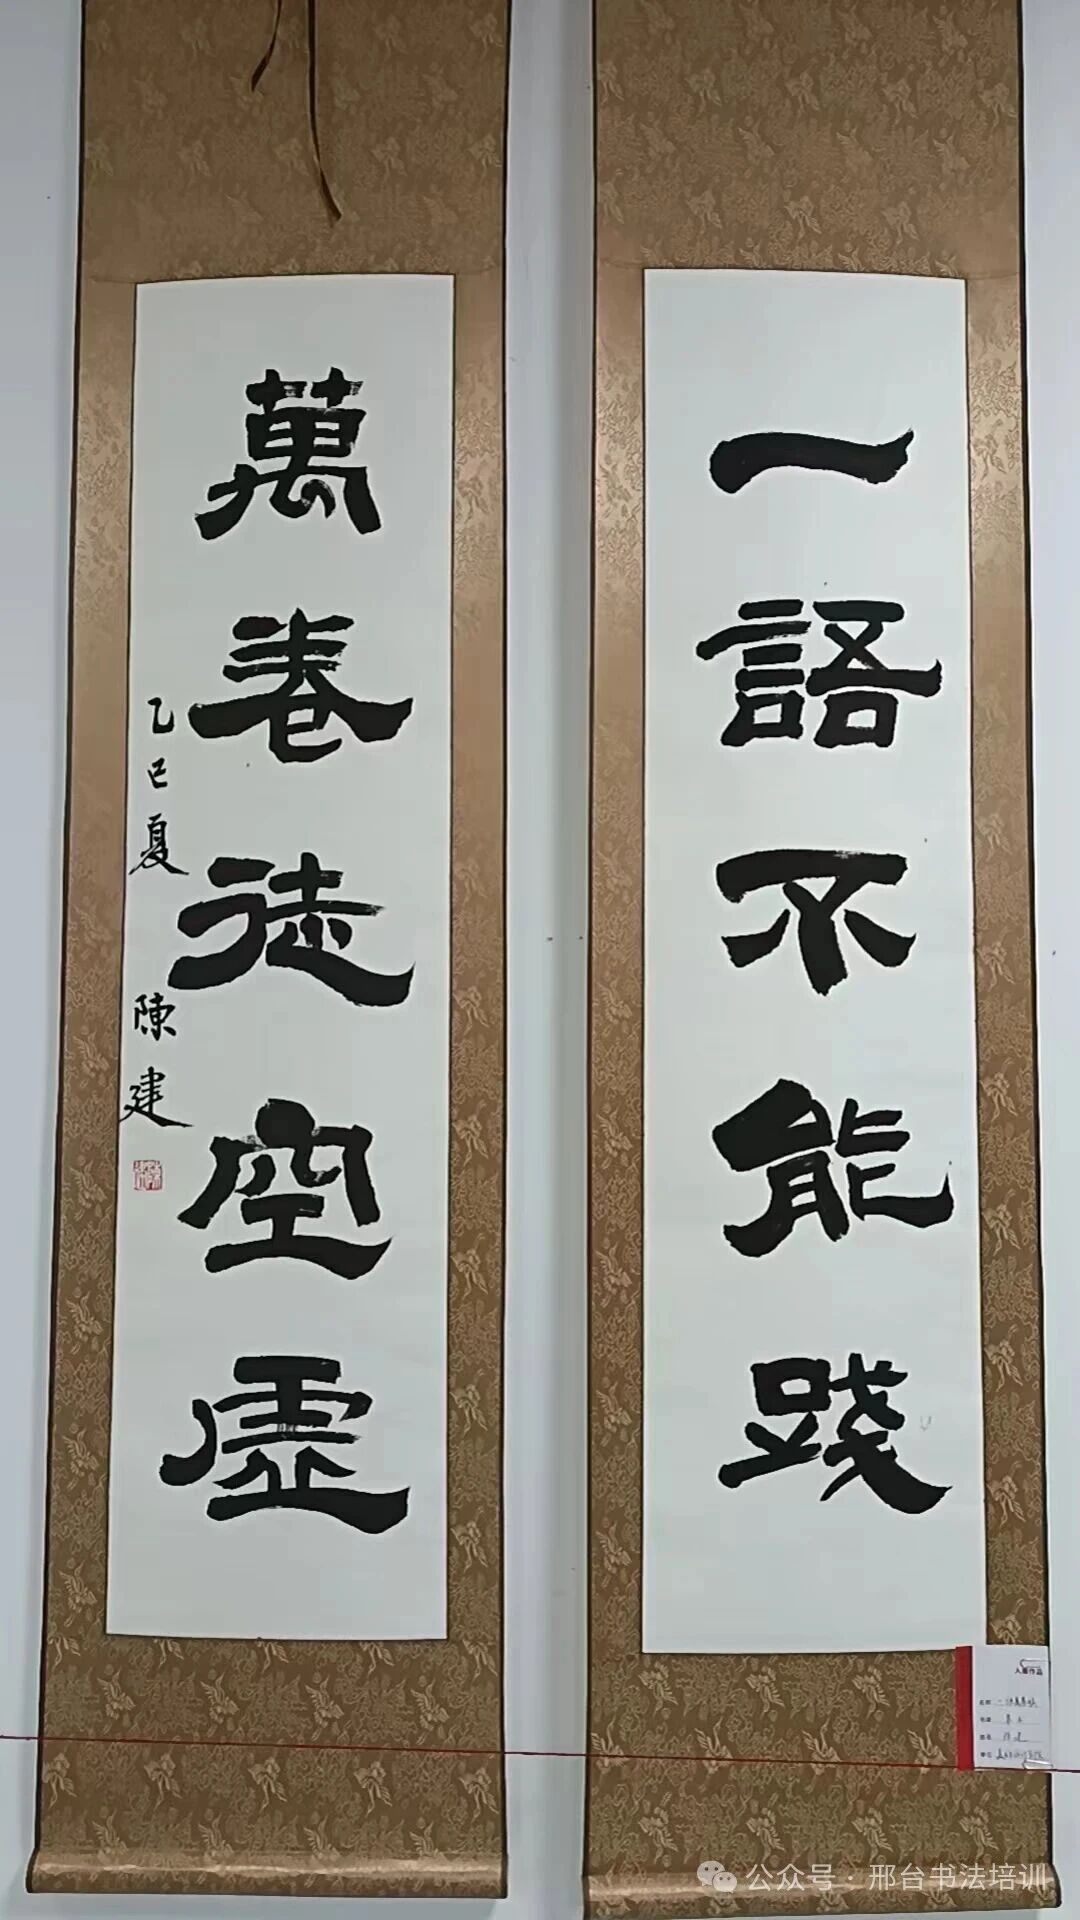 一語不能踐
萬卷徒空虛
乙巳夏 陳建
入展作品
公众号·邢台书法培训